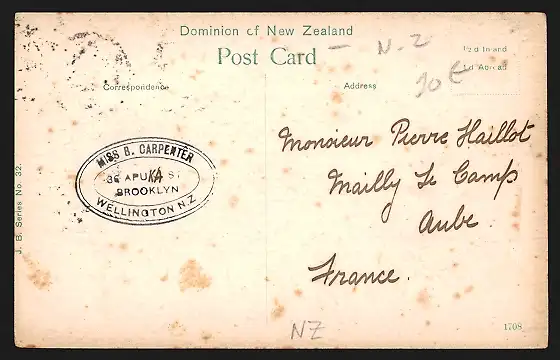 Dominion of New Zealand
Post Card
N.Z
½d Inland
1d Abroad
10€
Correspondence
Address
MISS B. CARPENTER
36 APUKA ST
BROOKLYN
WELLINGTON N.Z
Monsieur Pierre Haillot
Mailly Le Camp
Aube.
France.
J. B. Series No. 32.
NZ
1708